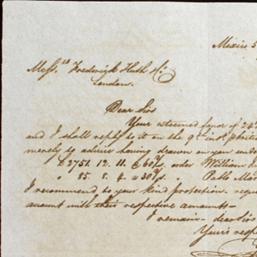 Mexico 5
Mess.rs Frederick Huth &c.
London.
Dear Sirs
Your esteemed favor of 24
and I shall reply to it on the 9th inst.
merely to advise having drawn on you
£2751. 12. 11. @ 60 order William
" 85. 5. 4. @ 30 Pablo
I recommend to your kind protection
amount with their respective amounts-
I remain- dear Sirs
Yours resp